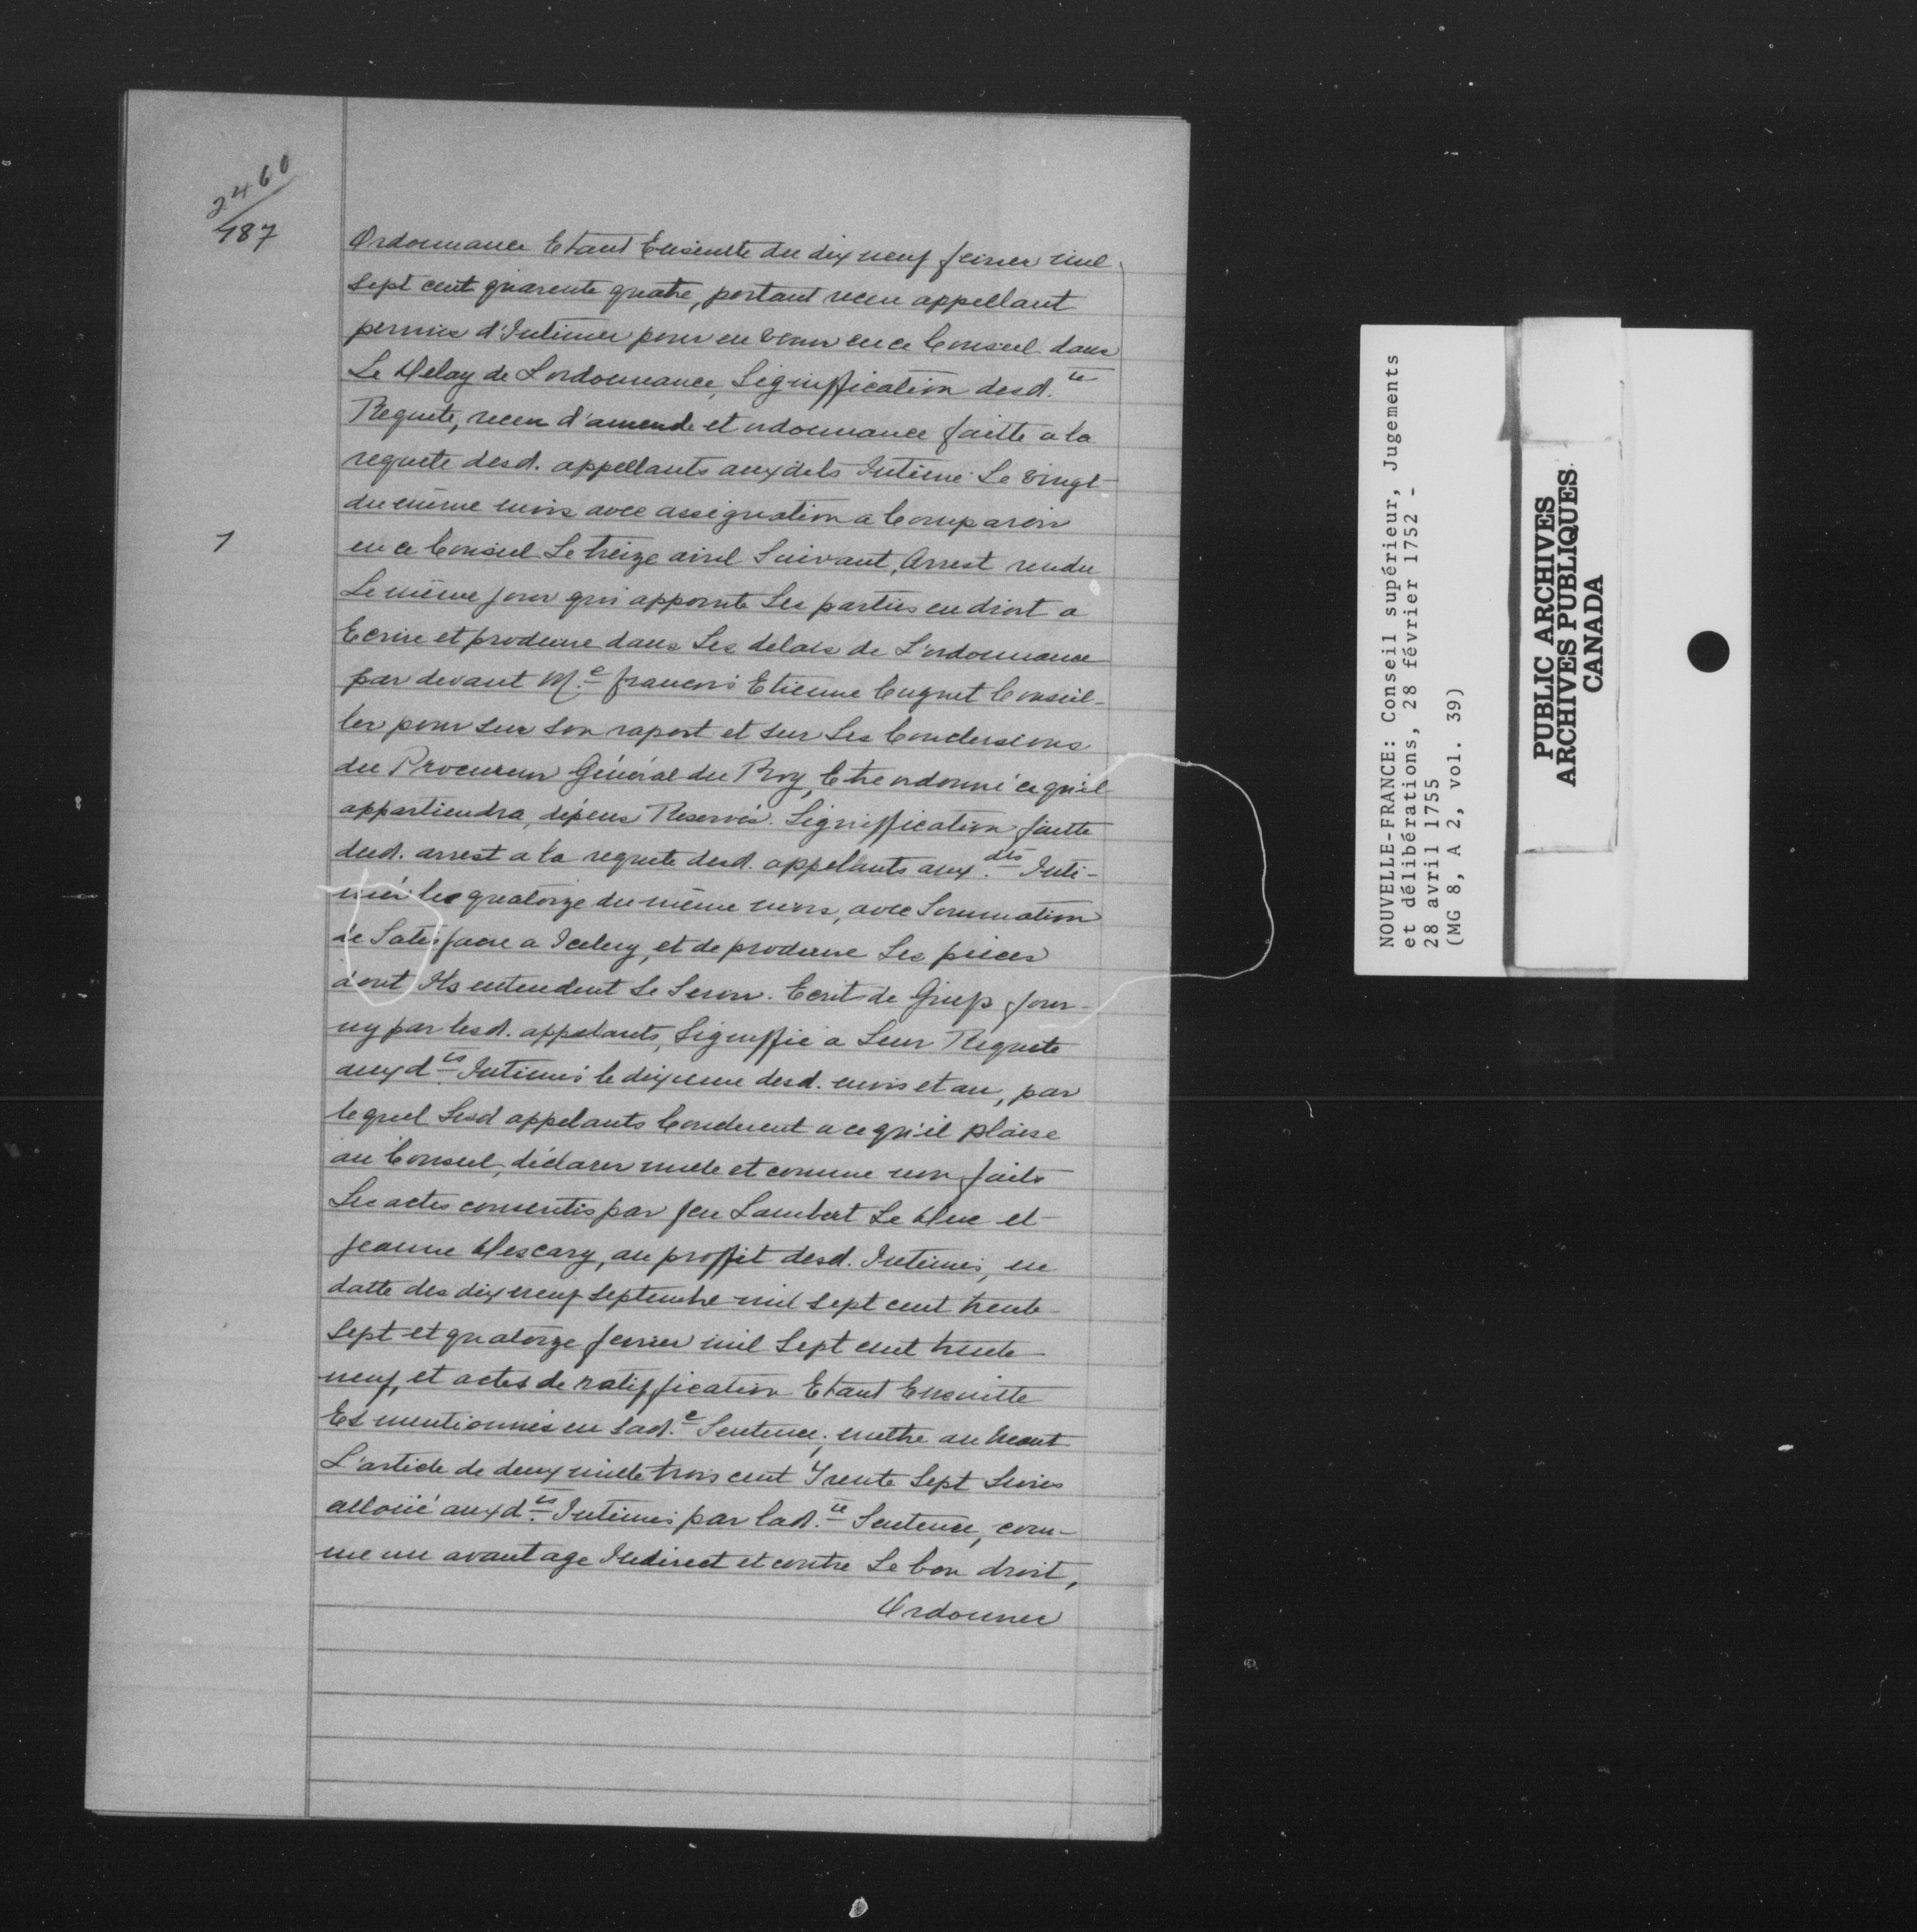 2460
487
Ordonnance Etant Ensuitte du dix neuf fevrier mil
Sept cent quarente quatre, portant receu appellant
permis d'Intimer pour en venir en ce Conseil dans
Le Delay de L'ordonnance, Signiffication desd. tes
Requete, receu d'amende et ordonnance faitte a la
requete desd. appellants aux dits Intimé Le vingt
du même mois avec assignation a Comparoir
1
en ce Conseil Le treize avril Suivant, Arrest rendu
Le même jour qui appointe Les parties en droit a
Ecrire et produire dans Les delais de L'ordonnance
par devant M.e françois Etienne Cugnet Conseil-
ler pour sur son raport et sur Les Conclusions
du Procureur Général du Roy, Etre ordonné ce qu'il
appartiendra, dépens Reservés. Signiffication faitte
dud. arrest a la requete desd. appelants aux. dts Inti-
més le quatorze du même mois, avec Sommation
de Satisfaire a Iceluy, et de produire Les pieces
dont Ils entendent Se Servir. Ecrit de Griefs four-
ny par lesd. appelants, Signiffié a Leur Requete
aux d.ts Intimés le dixieme desd. mois et an, par
lequel Lesd appelants Concluent a ce qu'il plaise
au Conseil, déclarer nuls et comme non faits
Les actes consentis par feu Lambert Le Duc et
Jeanne Descary, au proffit desd. Intimés, en
datte des dix neuf Septembre mil Sept cent trente
Sept et quatorze fevrier mil Sept cent trente
neuf, et actes de ratiffication Etant Ensuitte
Et mentionnés en Lad.e Sentence; mettre au neant
L'article de deux mille trois cent Trente Sept Livres
alloüé aux d.ts Intimés par Lad.te Sentence, com-
me un avantage Indirect et contre Le bon droit,
Ordonner
NOUVELLE-FRANCE: Conseil supérieur, Jugements
et délibérations, 28 février 1752 -
28 avril 1755
(MG 8, A 2, vol. 39)
PUBLIC ARCHIVES
ARCHIVES PUBLIQUES
CANADA